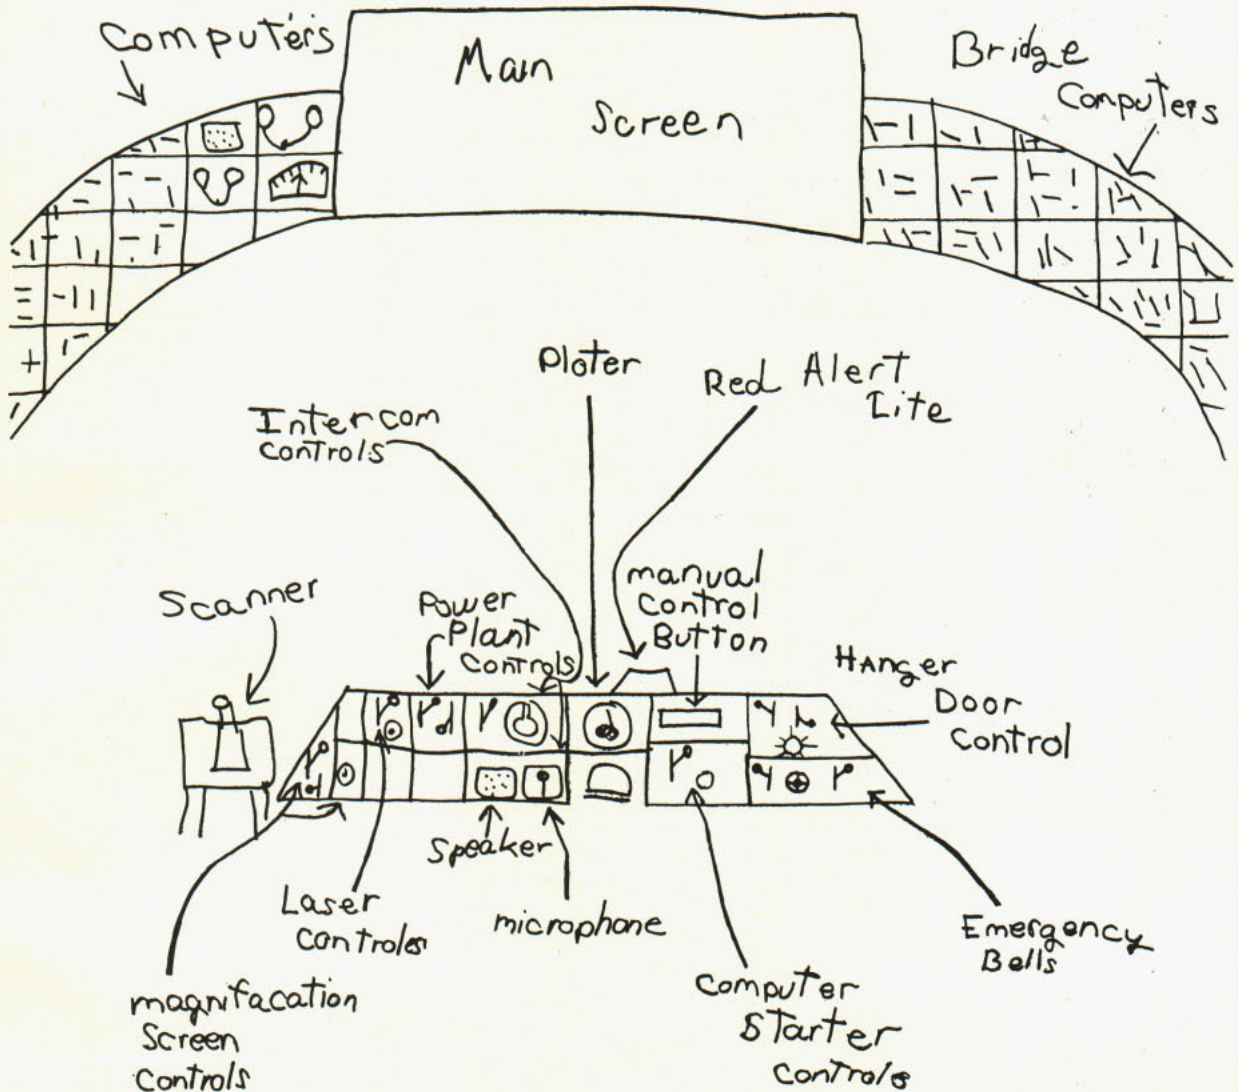 Computers
Main
Screen
Bridge
Computers
Ploter
Red Alert
Lite
Intercom
controls
manual
Control
Button
Scanner
Power
Plant
Controls
Hanger
Door
Control
Speaker
Laser
Controles
microphone
Emergency
Bells
magnifacation
Screen
Controls
Computer
Starter
Controls